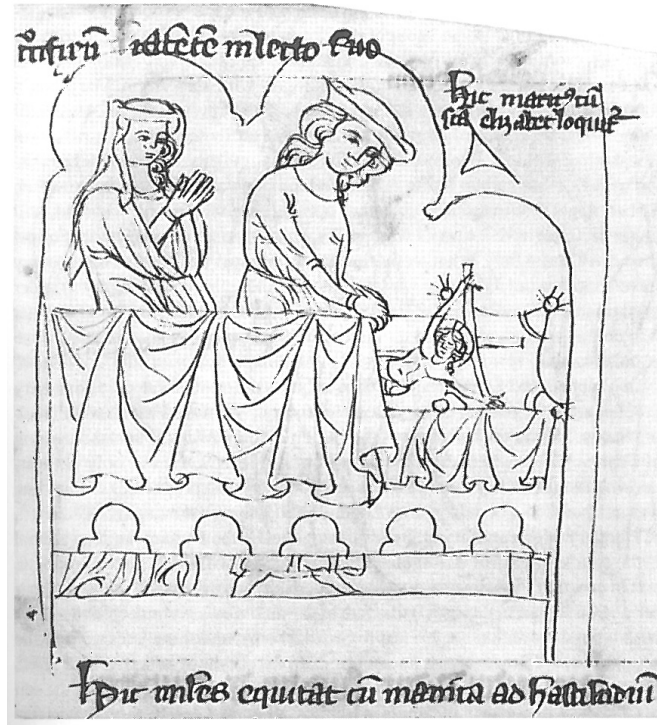 iacētē in lecto suo
Hic marit⁹ cū
scā elizabet loquit᷑
Hic miles equitat cū maria ad hastiladiū